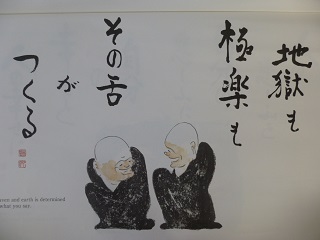 地獄も
極楽も
その舌
が
つくる
aven and earth is determined
what you say.